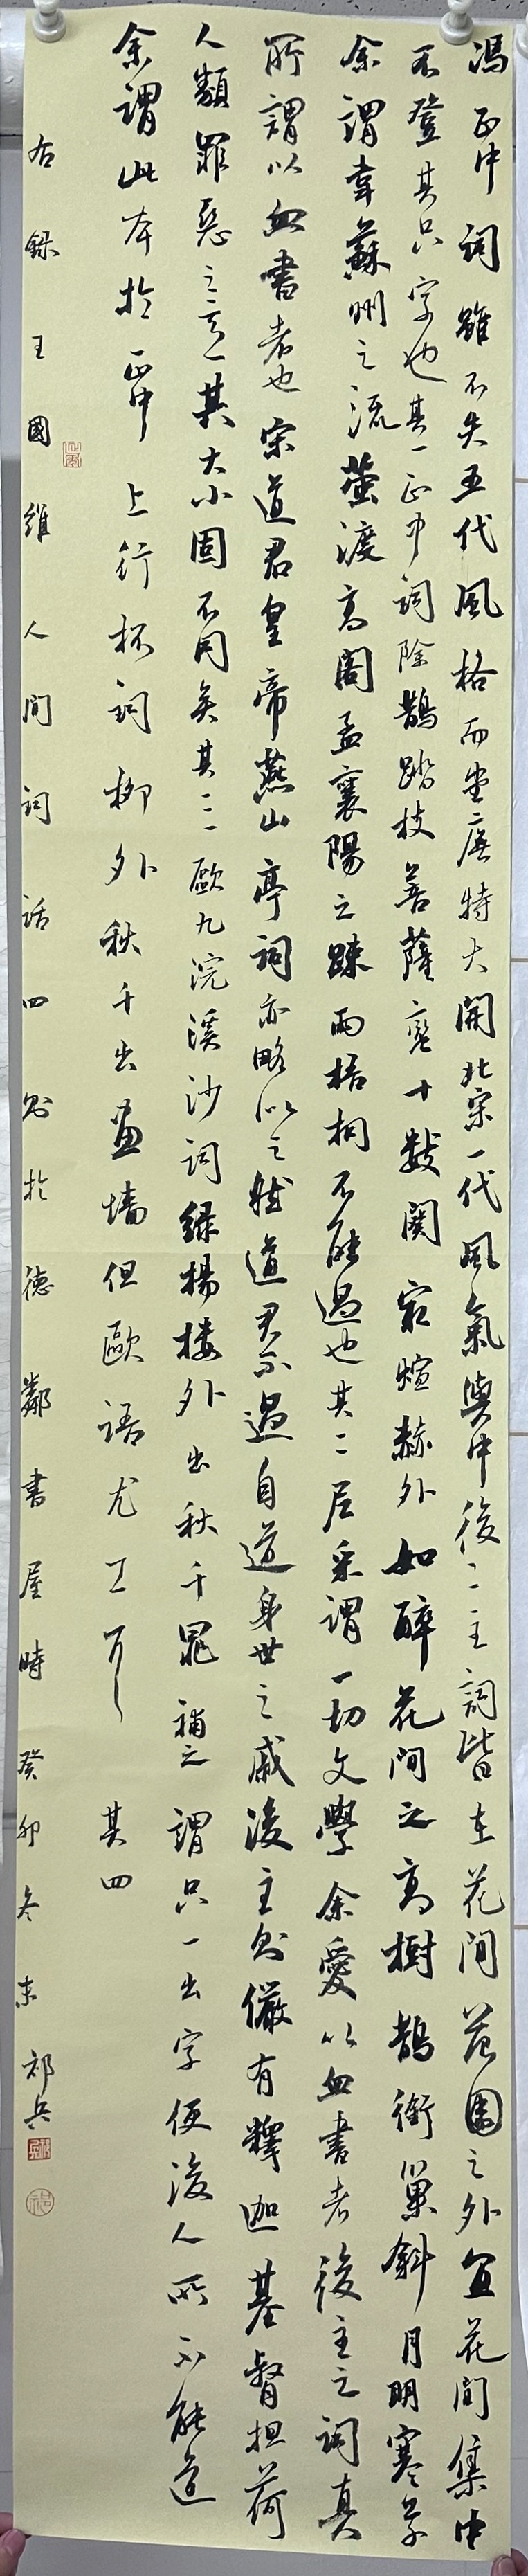 馮正中詞雖不失五代風格而堂廡特大開北宋一代風氣與中後二主詞皆在花間范圍之外宜花間集中
不登其只字也其一正中詞除鵲踏枝菩薩蠻十數闋最煊赫外如醉花間之高樹鵲銜巢斜月明寒草
余謂韋蘇州之流螢渡高閣孟襄陽之疎雨梧桐不能過也其二尼采謂一切文學余愛以血書者後主之詞真
所謂以血書者也宋道君皇帝燕山亭詞亦略似之然道君不過自道身世之戚後主則儼有釋迦基督担荷
人類罪惡之意其大小固不同矣其三歐九浣溪沙詞綠楊樓外出秋千晁補之謂只一出字便後人所不能道
余謂此本於正中上行杯詞柳外秋千出畫墻但歐語尤工耳其四
右錄王國維人間詞話四則於德鄰書屋時癸卯冬末祁兵